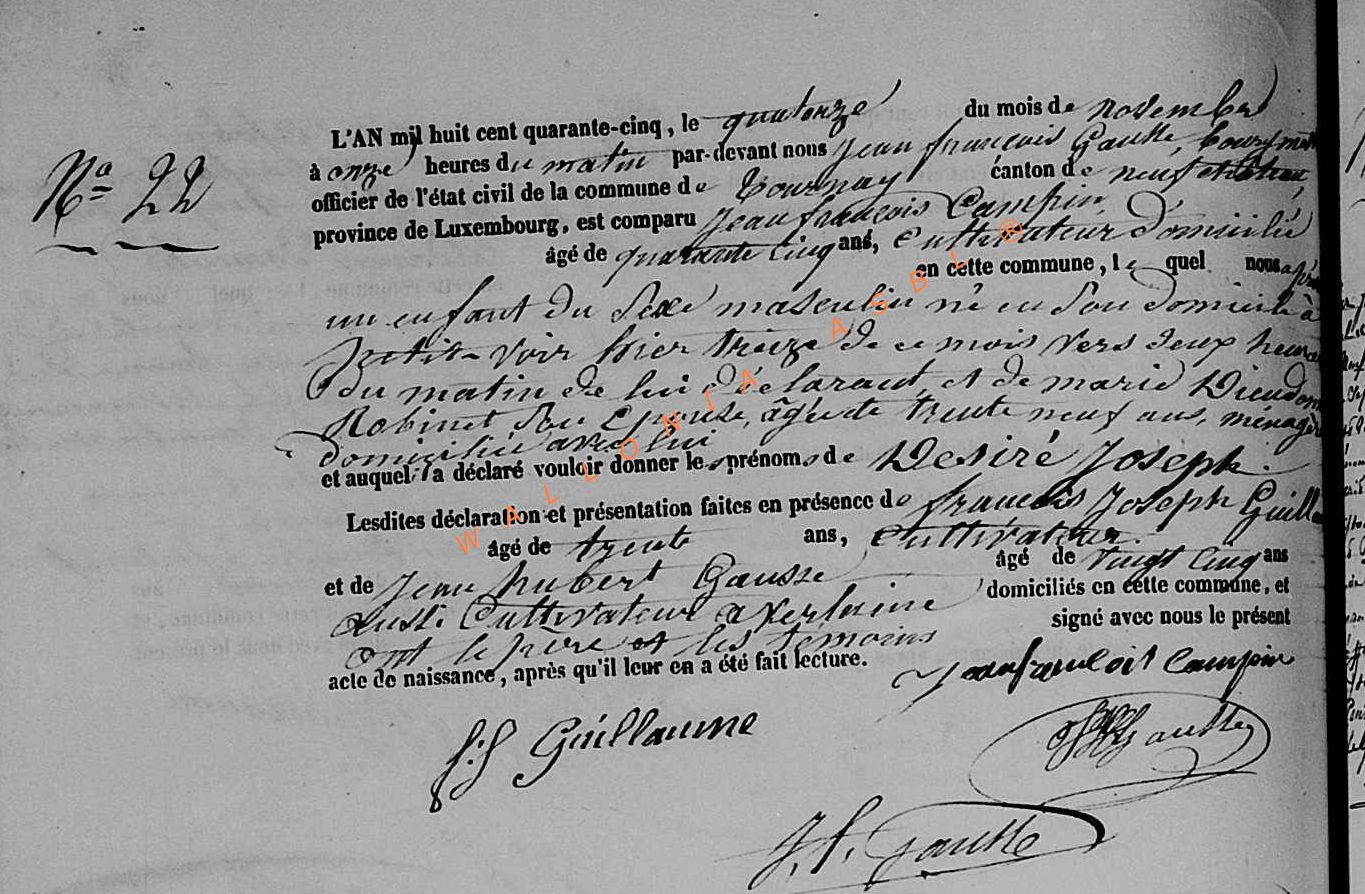 Nº 22
L'AN mil huit cent quarante-cinq, le quatorze du mois de novembre
à onze heures du matin par-devant nous Jean françois Gausse, bourgm
officier de l'état civil de la commune de Tournay canton de neufchateau,
province de Luxembourg, est comparu Jean françois Campin,
âgé de quarante cinq ans, Cultivateur, Domicilié
en cette commune, le quel nous a pré
un enfant du Sexe masculin né en Son domicile à
petit-voir hier treize de ce mois vers deux heures
du matin de lui déclarant, et de marie Dieudon
Robinet Son Epouse, âgée de trente neuf ans, ménagère
domiciliée avec lui
et auquel il a déclaré vouloir donner les prénoms de Desiré Joseph.
Lesdites déclaration et présentation faites en présence de francois Joseph Guill
âgé de trente ans, Cultivateur.
et de Jean hubert Gausse âgé de vingt cinq ans
aussi Cultivateur a Verlaine domiciliés en cette commune, et
ont le père et les temoins signé avec nous le présent
acte de naissance, après qu'il leur en a été fait lecture.
Jean francois Campin
f:J Guillaume
Gausse
J. f. Gausse
WALLONIA ASBL ®